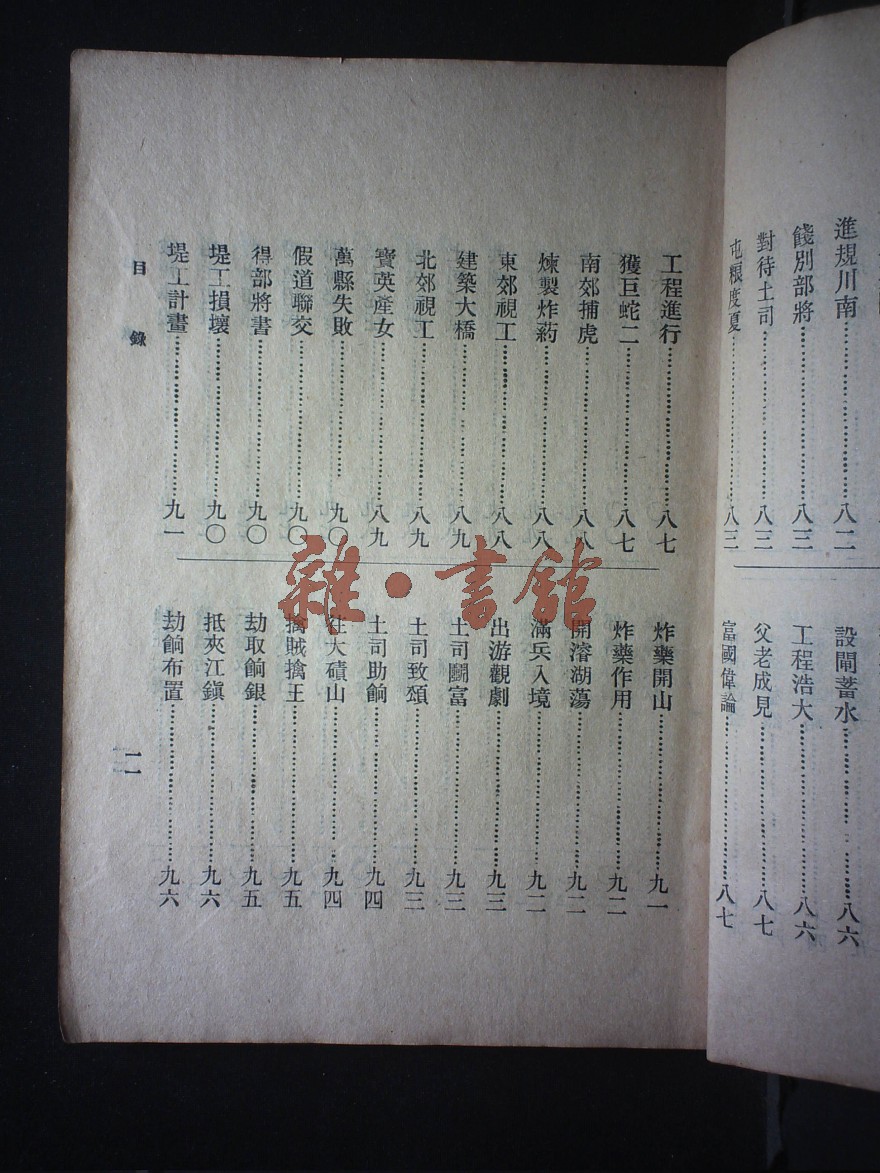 進規川南……八二
餞別部將……八三
對待土司……八三
屯粮度夏……八三
設閘蓄水……八六
工程浩大……八六
父老成見……八七
富國偉論……八七
工程進行……八七
獲巨蛇二……八七
南郊捕虎……八八
煉製炸葯……八八
東郊視工……八八
建築大橋……八九
北郊視工……八九
寶英產女……八九
萬縣失敗……九〇
假道聯交……九〇
得部將書……九〇
堤工損壞……九〇
堤工計畫……九一
炸藥開山……九一
炸藥作用……九二
開濬湖蕩……九二
滿兵入境……九二
出游觀劇……九三
土司鬭富……九三
土司致頌……九三
土司助餉……九四
往大磧山……九四
擒賊擒王……九五
劫取餉銀……九五
抵夾江鎭……九六
劫餉布置……九六
目錄
一一
雜·書館